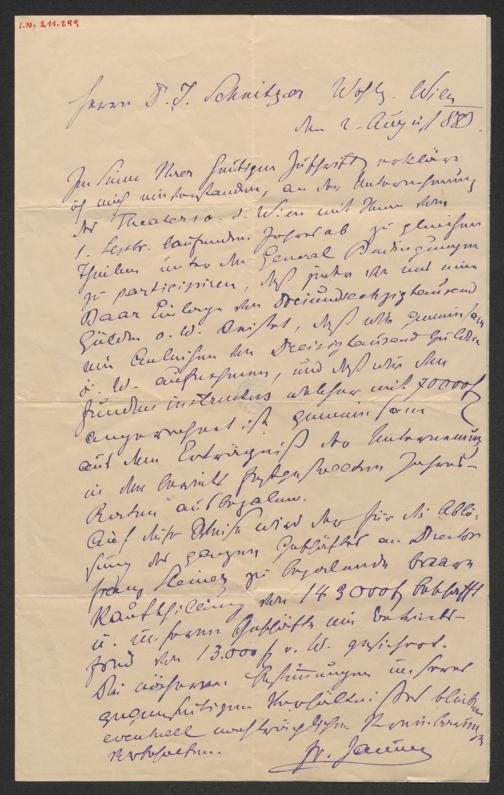 I.N. 211.299
Herrn D. I. Schnitzer Wohlg. Wien
den 2. August 883.
Im Sinne Ihrer heutigen Zuschrift erkläre
ich mich einverstanden, an der Unternehmung
des Theaters a. d. Wien mit Ihnen vom
1. Septbr. laufenden Jahres ab zu gleichen
Theilen unter den General Bedingungen
zu participiren, daß jeder von uns eine
Baar Einlage von Dreiundsechzigtausend
Gulden ö. W. leistet, daß wir gemeinsam
ein Anleihen von Dreissigtausend Gulden
ö. W. aufnehmen, und daß wir den
fundus instructus welcher mit 70000 f
angerechnet ist gemeinsam
aus dem Erträgniß der Unternehmung
in den bereits festgestellten Jahres-
Raten ausbezalen.
Auf diese Weise wird der für die Ablö-
sung des ganzen Geschäftes an Director
Franz Steiner zu bezalende baare
Kaufschilling von 143000 f beschafft
u. unserem Geschäfte ein Betriebs-
fond von 13.000 f ö. W. gesichert.
Die näheren Bestimmungen unseres
gegenseitigen Verhältnisses bleiben
eventuell nachträglicher Vereinbarung
vorbehalten.
Fr. Jauner